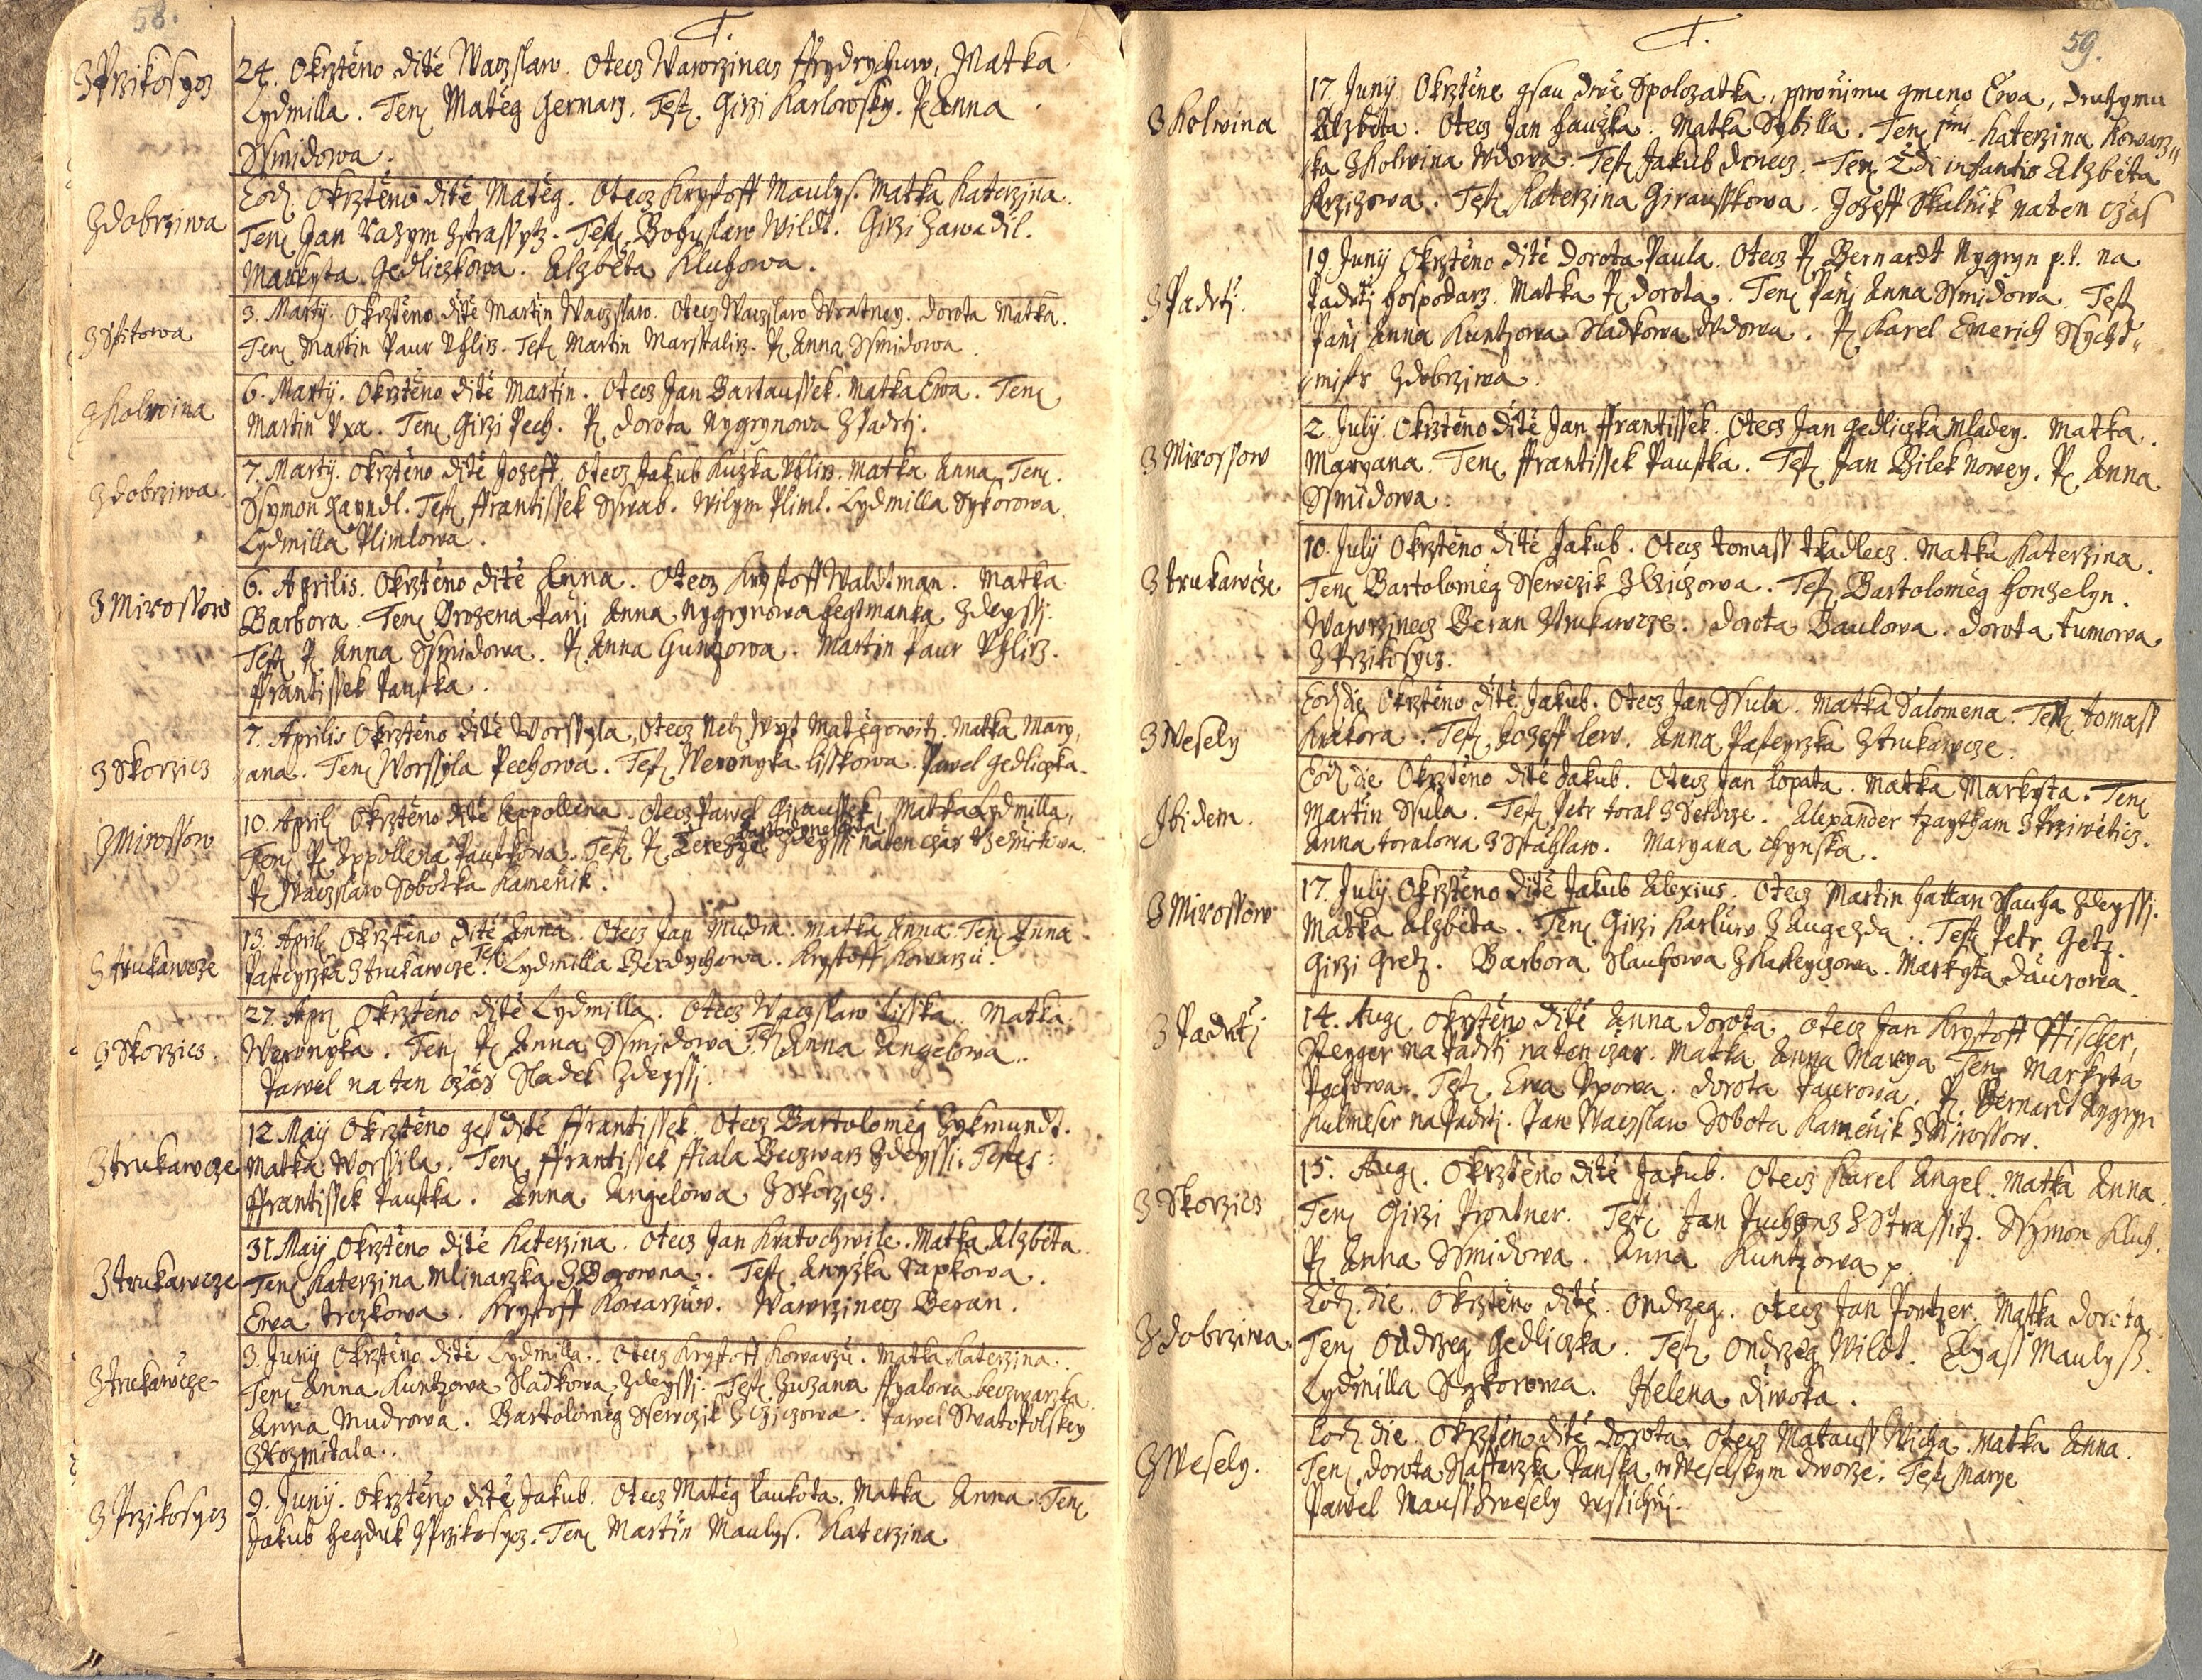 58.
Z Przikosycz
24. Okrztěno dítě Waczslaw. Otecz Wawrzinecz Ffrydrychuw, Matka
Lydmilla. Ten: Matěg Gernarz. Test. Girzi Karlowsky. P. Anna
Ssmidowa.
Z dobrziwa
Eod. Okrztěno dítě Matěg. Otecz Krystoff Maulys. Matka Katerzina.
Ten: Jan Razym Zstrassytz. Test. Bohuslaw Wildt. Girzi Zawadil.
Markyta Gedliczkowa. Alzběta Kluhowa.
Z Sstitowa
3. Martij. Okrztěno dítě Martin Waczslaw. Otecz Waczslaw Wratney. Dorota Matka.
Ten: Martin Paur Vhlirz. Test. Martin Marsstalirz. P. Anna Ssmidowa.
Z Kolwina
6. Martij. Okrztěno dítě Martin. Otecz Jan Bartaussek. Matka Ewa. Ten:
Martin Vxa. Ten: Girzi Pech. P. Dorota Nygrynowa Z Padrtj.
Z dobrziwa.
7. Martij. Okrztěno dítě Jozeff. Otecz Jakub Kuzka Vhlirz. Matka Anna. Ten:
Ssymon Rayndl. Test. Ffrantissek Sswab. Wilym Pliml. Lydmilla Sykorowa.
Lydmilla Plimlowa.
Z Mirossow
6. Aprilis. Okrztěno dítě Anna. Otecz Krystoff Waldtman. Matka
Barbora. Ten: Vrozena Panj Anna Nygrynowa Hegtmanka Zdeyssj.
Test. P. Anna Ssmidowa. P. Anna Guntzowa. Martin Paur Vhlirz.
Ffrantissek Paustka.
Z Skorzicz
7. Aprilis Okrztěno dítě Worssyla, Otecz Neh. Wyt Matěgowitz. Matka Mary,
ana. Ten: Worssyla Pechowa. Test. Weronyka Lisskowa. Pawel Gedliczka.
Z Mirossow
10. April: Okrztěno dítě Appollena. Otecz Pawel Giraussek, Matka Lydmilla,
Ten: P. Appollena Paustkowa. Test. P. Zdeyssj na ten czas
P. Waczslaw Sobotka Kamenik.
Z Trukawcze
13. April: Okrztěno dítě Anna. Otecz Jan Mudra. Matka Anna. Ten: Anna
Pasteyrzka Z trukawcze. Test. Lydmilla Berdychowa. Krystoff Kowarzu.
Z Skorzicz.
27. Apr: Okrztěno dítě Lydmilla. Otecz Waczslaw Lisska. Matka
Weronyka. Ten: P. Anna Ssmidowa. T. Anna Angelowa.
Pawel na ten czas Sladek Zdeyssj.
Z trukawcze
12. Maij Okrztěno gest dítě Ffrantissek. Otecz Bartolomèg Zykmundt.
Matka Worssila. Ten: Ffrantissek Ffiala Beczwarz Zdeyssj. Testes:
Ffrantissek Paustka. Anna Angelowa Z Skorzicz.
Z trukawcze
31. Maij Okrztěno dítě Katerzina. Otecz Jan Kratochwile. Matka Alzběta.
Ten: Katerzina Mlinarzka Z Borowna. Test. Anyzka Rapkowa.
Ewa Treskowa. Krystoff Kowarzuw. Wawrzinecz Beran.
Z trukawcze
3. Junij Okrztěno dítě Lydmilla. Otecz Krystoff Kowarzu. Matka Katerzina.
Ten: Anna Kuntzowa Sladkowa Zdeyssj. Test. Zuzana Ffyalowa beczwarzka.
Anna Mudrowa. Bartolomèg Ssewczik Z Cziczowa. Pawel Swatopolskey
Z Rozmitala.
Z Przikosycz
9. Junij. Okrztěno dítě Jakub. Otecz Matěg Laukota. Matka Anna. Ten:
Jakub Hegduk Z Przikosycz. Ten: Martin Maulys. Katerzina
59.
Z Kolwina
17. Junij Okrztěne gsau dwě Spolozatka, prwnimu gmeno Ewa, druhymu
Alzběta. Otecz Jan Hauzka. Matka Sybilla. Ten: Katerzina Kowarz,,
ka Z Kolwina Wdowa. Test. Jakub Ten: 2di infantis Alzběta
Krzizowa. Test. Katerzina Giraussková. Jozeff Skalnik na ten czas
Z Padrtj.
19. Junij Okrztěno dítě Dorota Paula. Otecz P. Bernardt Nygryn p.t. na
Padrtj Hospodarz. Matka P. Dorota. Ten: Panj Anna Ssmidowa. Test.
Panj Anna Kuntzowa Sladkowa Wdowa. P. Karel Emerich Ssycht,,
mistr Z dobrziwa.
Z Mirossow
2. Julij. Okrztěno dítě Jan Ffrantissek. Otecz Jan Gedliczka Mladey. Matka
Maryana. Ten: Ffrantissek Paustka. Test. Jan Bilek Nowey. P. Anna
Ssmidowa.
Z trukawcze
10. Julij Okrztěno dítě Jakub. Otecz Tomass Tkadlecz. Matka Katerzina.
Ten: Bartolomèg Ssewczik Z Cziczowa. Test. Bartolomèg Honzelyn.
Wawrzinecz Beran Z trukawcze. Dorota Baulowa. Dorota Tumowa
Z Przikosycz.
Z Wesely
Eod. die Okrztěno dítě Jakub. Otecz Jan Skula. Matka Salomena. Test. Tomass
Krákora. Test. Jozeff Lew. Anna Pasteyrzka Z trukawcze.
Ibidem.
Eod. die Okrztěno dítě Jakub. Otecz Jan Lopata. Matka Markyta. Ten:
Martin Skula. Test. Petr Toral Z Alexander Z Prziwětic.
Anna Toralowa Z Sstahlaw. Maryana Chynska.
Z Mirossow
17. Julij Okrztěno dítě Jakub Alexius. Otecz Martin Hattan Slauha Zdeyssj.
Matka Alzběta. Ten: Girzi Karluw Z Augezda. Test. Petr Getz.
Girzi Gretz. Barbora Slauhowa Markyta Daurowa.
Z Padrtj
14. Aug: Okrztěno dítě Anna Dorota, Otecz Jan Krystoff Ffischer,
Steyger na Padrtj na ten czas. Matka Anna Marya. Ten: Markyta
Pechowa. Test. Ewa Vxowa. Dorota Paurowa. P. Bernardt Nygryn
na Padrtj. Pan Waczslaw Sobota Kamenik Z Mirossow.
Z Skorzicz
15. Aug: Okrztěno dítě Jakub. Otecz Karel Angel. Matka Anna.
Ten: Girzi Prontner. Test: Jan Z Strassitz. Ssymon Kluh.
P. Anna Ssmidowa. Anna Kuntzowa p.
Z dobrziwa.
Eod. die. Okrztěno dítě Ondrzeg. Otecz Jan Portzer. Matka Dorota.
Ten: Ondrzeg Gedliczka. Test. Ondrzeg Wildt. Elyass Maulysz.
Lydmilla Sykorowa. Helena Diwoka.
Z Wesely.
Eod. die. Okrztěno dítě Dorota. Otecz Matauss Wicha. Matka Anna.
Ten: Dorota Ssaffarzka Panska w Weselskym dworze. Test. Marye
Pawel Mauss Z Wesely wssichni.